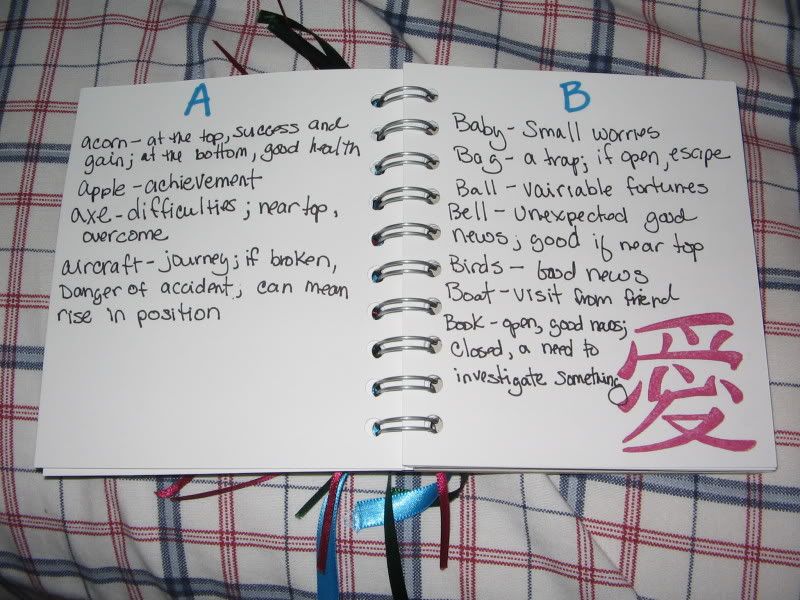 A
acorn - at the top, success and
gain; at the bottom, good health
apple - achievement
axe - difficulties; near top,
overcome
aircraft - journey; if broken,
Danger of accident; can mean
rise in position
B
Baby - Small worries
Bag - a trap; if open, escape
Ball - vairiable fortunes
Bell - Unexpected good
news; good if near top
Birds - good news
Boat - visit from friend
Book - open, good news;
Closed, a need to
investigate something
愛